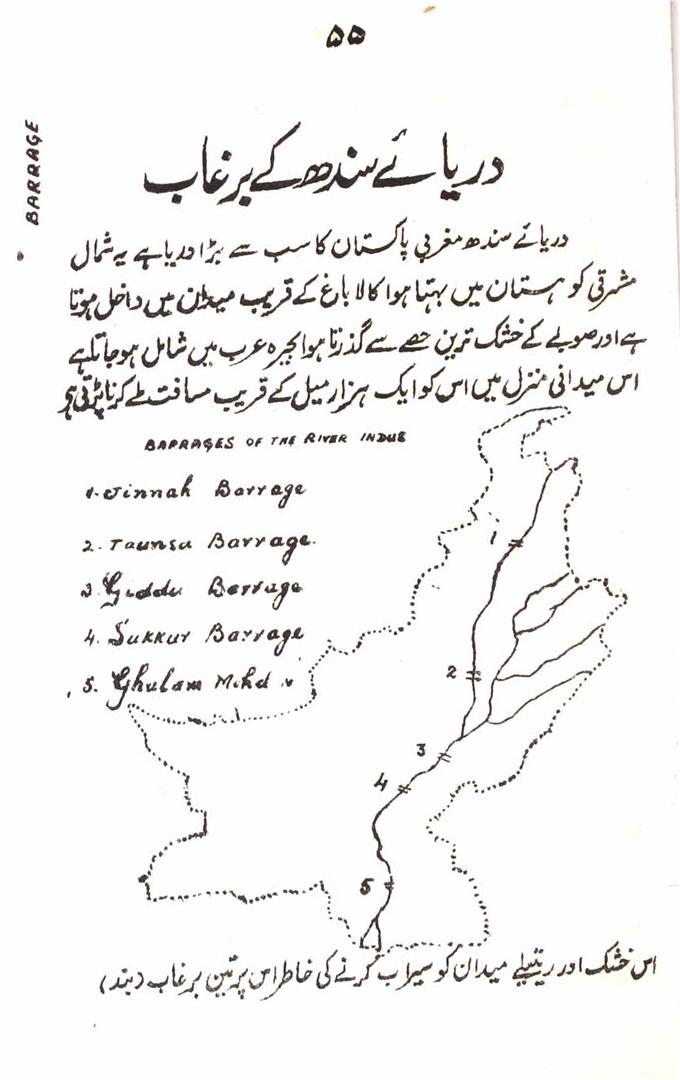 ۵۵
BARRAGE
دریائے سندھ کے برغاب
دریائے سندھ مغربی پاکستان کا سب سے بڑا دریا ہے یہ شمال
مشرقی کوہستان میں بہتا ہوا کالا باغ کے قریب میدان میں داخل ہوتا
ہے اور صوبے کے خشک ترین حصے سے گذرتا ہوا بحیرہ عرب میں شامل ہو جاتا ہے
اس میدانی منزل میں اس کو ایک ہزار میل کے قریب مسافت طے کرنا پڑتی ہے
BARRAGES OF THE RIVER INDUS
1. Jinnah Barrage
2. Taunsa Barrage.
3. Guddu Barrage
4. Sukkur Barrage
5. Ghulam Mohd
1
2
3
4
5
اس خشک اور ریتیلے میدان کو سیراب کرنے کی خاطر اس پر تین برغاب (بند)